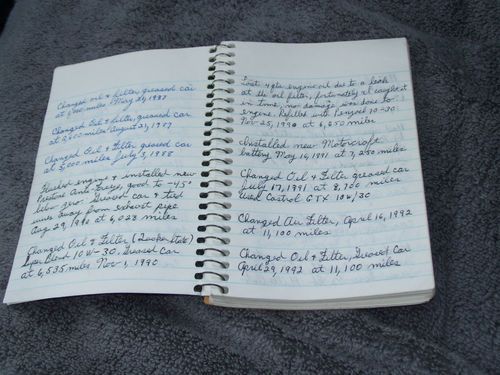 Changed oil & filter, greased car
at miles May 21, 1987
Changed Oil & Filter, greased car
at 2,000 miles August 31, 1987
Changed Oil & Filter greased car
at 3,000 miles, July 3, 1988
Flushed engine & installed new
Prestone Anti-Freeze, good to -45°
below zero. Greased car & tied
wires away from exhaust pipe
Aug 29, 1990 at 6,028 miles
Changed Oil & Filter (Quaker State)
Super Blend 10W-30, Greased Car
at 6,535 miles Nov 1, 1990
Lost 4 qts engine oil due to a leak
at the oil filter, fortunately I caught it
in time, no damage was done to
engine. Refilled with Penzoil 10-30
Nov 25, 1990 at 6,650 miles
Installed new Motorcraft
battery, May 16, 1991 at 7,250 miles
Changed Oil & Filter greased car
July 17, 1991 at 8,700 miles
Used Castrol GTX 10W/30
Changed Air Filter, April 16, 1992
at 11,100 miles
Changed Oil & Filter, Greased Car
April 29, 1992 at 11,100 miles